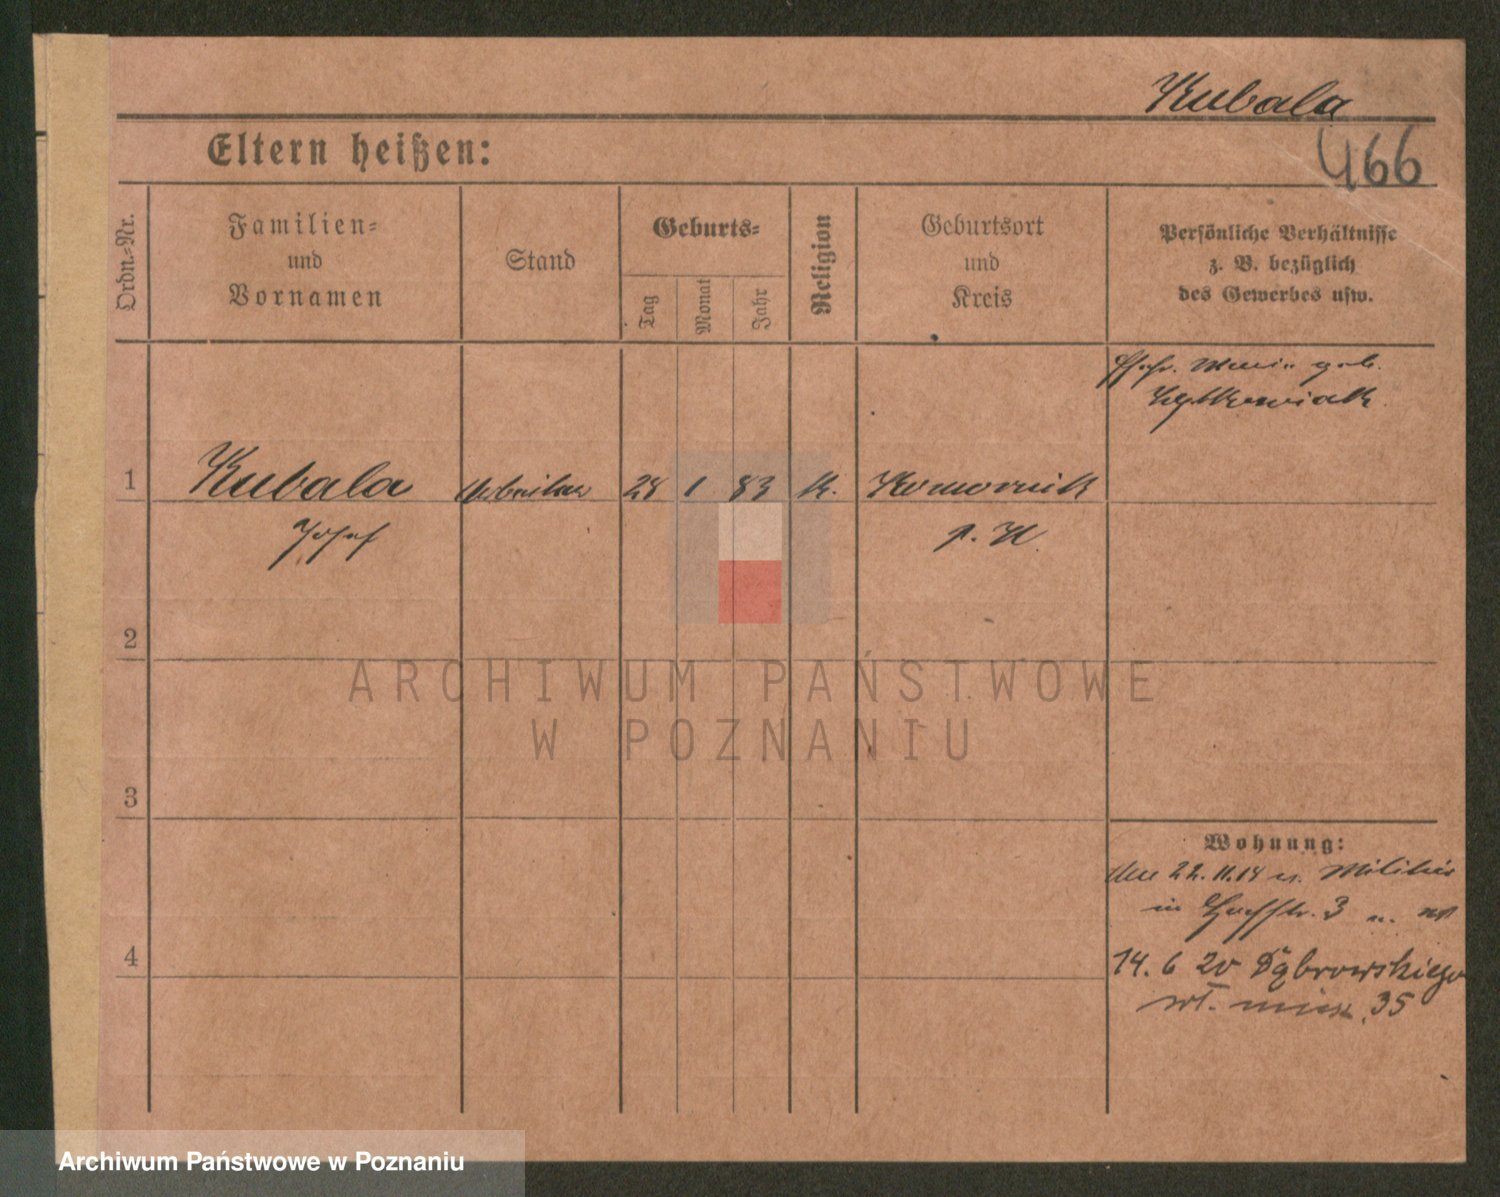 Kubala
466
Eltern heißen:
Ordn.-Nr.
Familien-
und
Vornamen
Stand
Geburts-
Tag
Monat
Jahr
Religion
Geburtsort
und
Kreis
Persönliche Verhältnisse
z. B. bezüglich
des Gewerbes usw.
Ehefr. Maria geb.
1
Kubala
Arbeiter
28
1
83
k.
Komornik
Josef
p. W.
2
ARCHIWUM PAŃSTWOWE
W POZNANIU
3
Wohnung:
22.11.14 v. Militär
in 3
4
14. 6 20 Dąbrowskiego
wł. miesz. 35
Archiwum Państwowe w Poznaniu